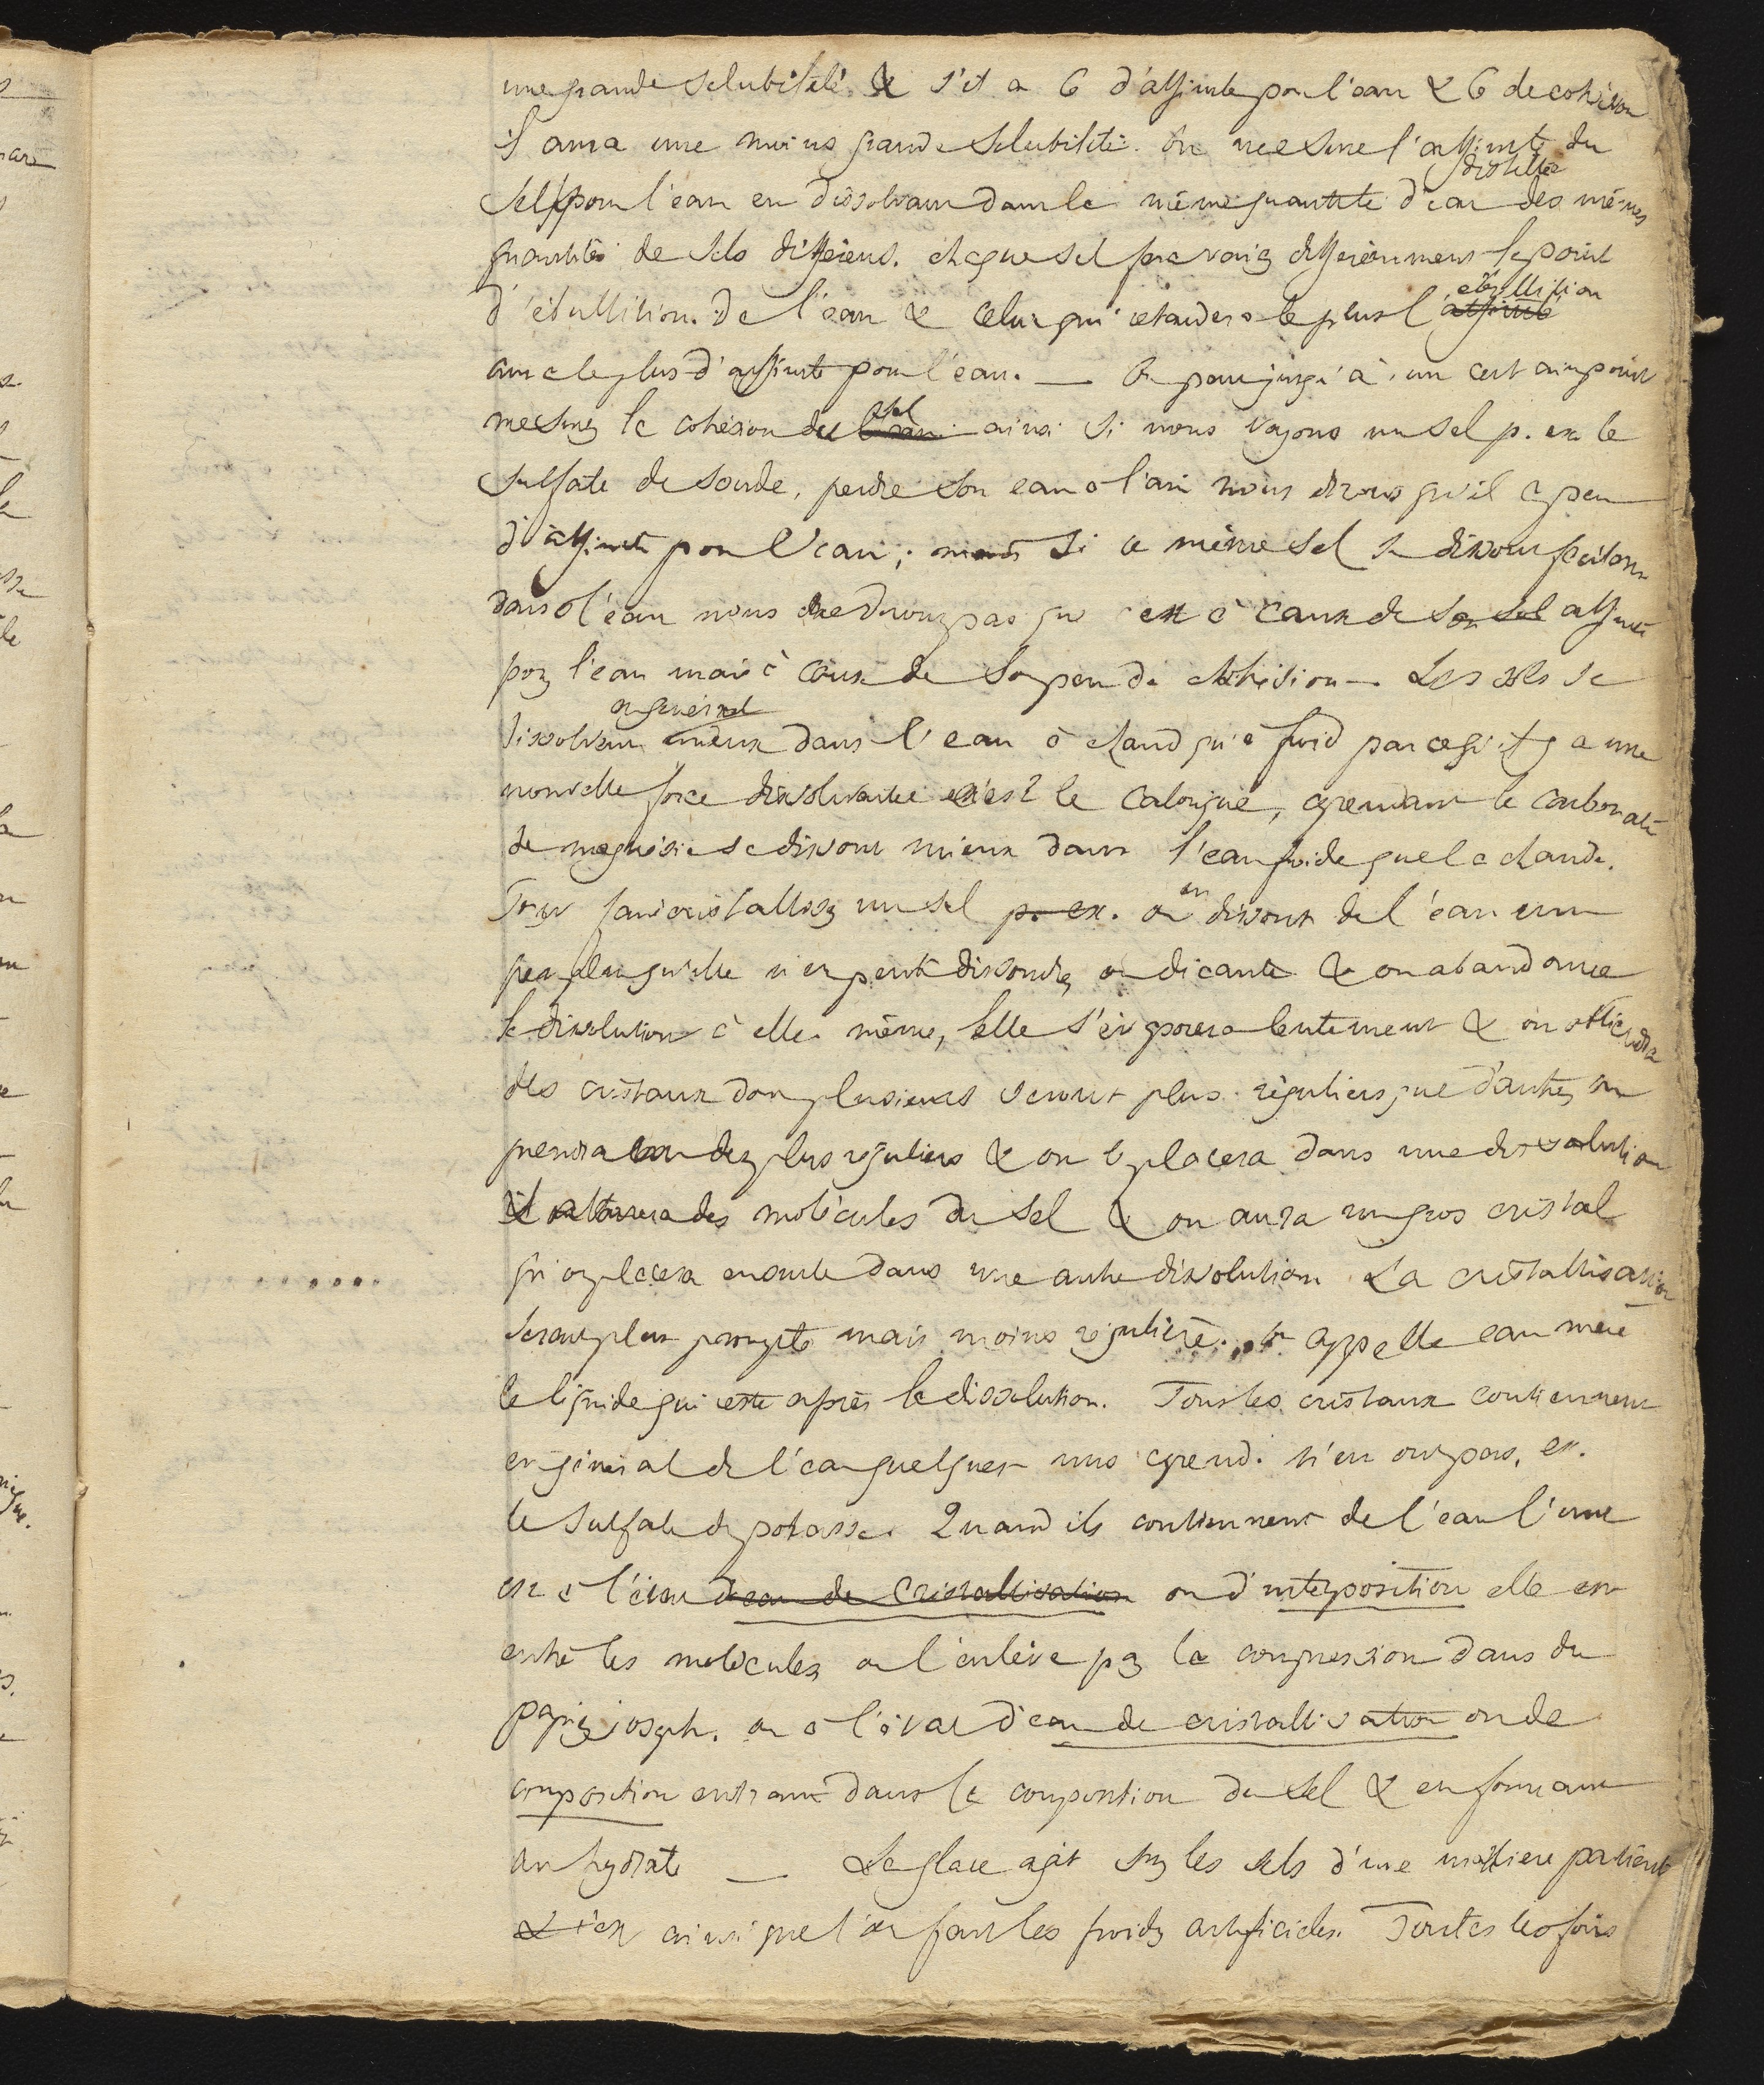 une grande solubilité & s'il a 6 d'affinité pour l'eau & 6 de cohésion
il aura une moins grande solubilité. On mesure l'affinité du
sel pour l'eau en dissolvant dans la même quantité d'eau distillée des mêmes
quantités de sels différens. chaque sel fera varier différemment le point
d'ébullition de l'eau & celui qui retardera le plus l'affinité ébullition
aura le plus d'affinité pour l'eau. — On peut jusqu'à un certain point
mesurer la cohésion du sel ainsi si nous voyons un sel p. ex le
sulfate de soude, perdre son eau à l'air nous dirons qu'il a peu
d'affinité pour l'eau; mais si ce même sel se dissout facilem
dans l'eau nous ne dirons pas que c'est à cause de son sel affinité
pour l'eau mais à cause de son peu de cohésion — Les sels se
dissolvent en général mieux dans l'eau à chaud qu'à froid parce qu'il y a une
nouvelle force dissolvante c'est le calorique, cependant le carbonate
de magnésie se dissout mieux dans l'eau froide que la chaude.
Pour faire cristalliser un sel p. ex. on en dissout de l'eau un
peu plus qu'elle n'en peut dissoudre, on décante & on abandonne
la dissolution à elle même, elle s'évaporera lentement & on obtiendra
des cristaux dont plusieurs seront plus réguliers que d'autres, on
prendra un des plus réguliers & on le placera dans une dissolution
il attirera des molécules du sel & on aura un gros cristal
qu'on placera ensuite dans une autre dissolution. La cristallisation
sera plus prompte mais moins régulière. On appelle eau mère
le liquide qui reste après la dissolution. Tous les cristaux contiennent
en général de l'eau quelques uns cepend. n'en ont pas, ex.
le sulfate de potasse. Quand ils contiennent de l'eau l'une
est à l'état d'eau de cristallisation ou d'interposition elle est
entre les molécules on l'enlève par la compression dans du
papier joseph. ou à l'état d'eau de cristallisation ou de
composition entrant dans la composition du sel & en formant
un hydrate — La glace agit sur les sels d'une manière particul
ainsi que l'on fait les froids artificiels. Toutes les fois